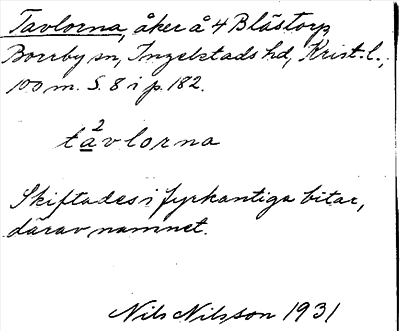 Tavlorna, åker å 4 Blästorp,
Borrby sn, Ingelstads hd, Krist. l.,
100 m. S. 8 i p. 182.
ta²vlorna
Skiftades i fyrkantiga bitar,
därav namnet.
Nils Nilsson 1931